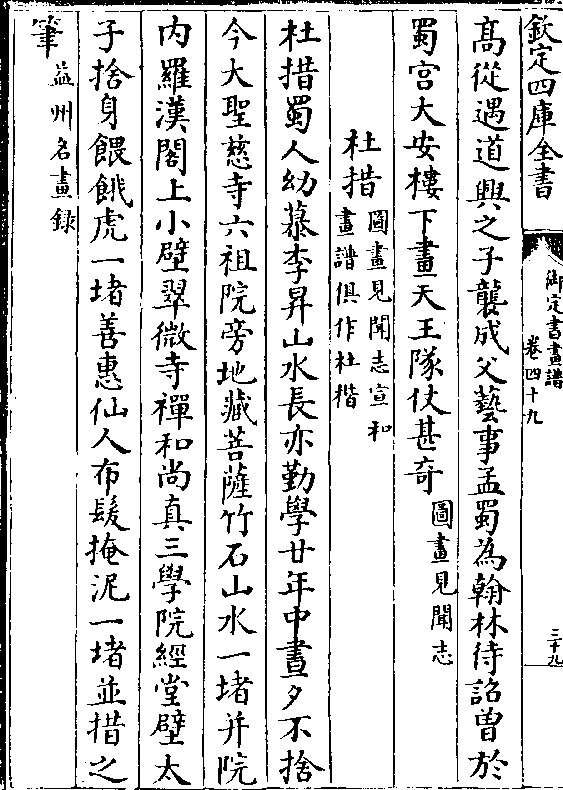 欽定四庫全書
御定書畫譜
卷四十九
三十九
髙從遇道興之子襲成父藝事孟蜀為翰林待詔曽於
蜀宫大安樓下畫天王隊仗甚奇圖畫見聞志
杜措圖畫見聞志宣和
畫譜俱作杜楷
杜措蜀人幼慕李昇山水長亦勤學廿年中晝夕不捨
今大聖慈寺六祖院旁地藏菩薩竹石山水一堵并院
内羅漢閣上小壁翠微寺禪和尚真三學院經堂壁太
子捨身餵餓虎一堵善惠仙人布髮掩泥一堵並措之
筆益州名畫録